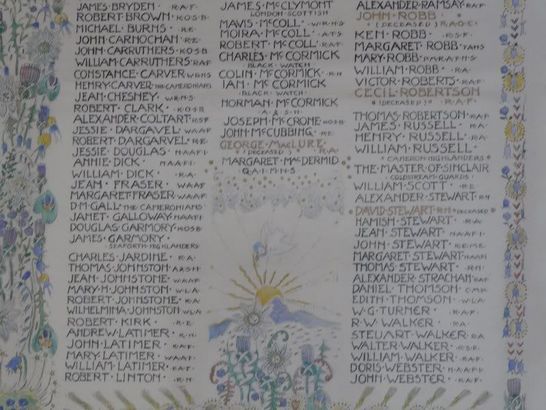 JAMES·BRYDEN·R·A·F·
ROBERT·BROWN·K·O·S·B·
MICHAEL·BURNS·R·E·
JOHN·CARNOCHAN·R·E·
JOHN·CARRUTHERS·K·O·S·B·
WILLIAM·CARRUTHERS·R·A·F·
CONSTANCE·CARVER·W·R·N·S·
HENRY·CARVER·THE CAMERONIANS
JEAN·CHESNEY·W·R·N·S·
ROBERT·CLARK·K·O·S·B·
ALEXANDER·COLTART·
JESSIE·DARGAVEL·W·A·A·F·
ROBERT·DARGAVEL·R·E·
JESSIE·DOUGLAS·N·A·A·F·I·
ANNIE·DICK·N·A·A·F·I·
WILLIAM·DICK·R·A·
JEAN·FRASER·W·A·A·F·
MARGARET·FRASER·W·A·A·F·
D·M·GALL·THE CAMERONIANS
JANET·GALLOWAY·N·A·A·F·I·
DOUGLAS·GARMORY·K·O·S·B·
JAMES·GARMORY·
SEAFORTH·HIGHLANDERS
CHARLES·JARDINE·R·A·
THOMAS·JOHNSTON·A·&·S·H·
JEAN·JOHNSTONE·W·A·A·F·
MARY·H·JOHNSTON·W·L·A·
ROBERT·JOHNSTONE·R·A·
WILHELMINA·JOHNSTON·W·L·A·
ROBERT·KIRK·R·E·
ANDREW·LATIMER·R·N·
JOHN·LATIMER·R·A·F·
MARY·LATIMER·W·A·A·F·
WILLIAM·LATIMER·R·A·F·
ROBERT·LINTON·R·N·
JAMES·McCLYMONT
LONDON·SCOTTISH
MAVIS·McCOLL·W·R·N·S·
MOIRA·McCOLL·A·T·S·
ROBERT·McCOLL·R·A·F·
CHARLES·McCORMICK
BLACK·WATCH
COLIN·McCORMICK·R·N·
IAN·McCORMICK
BLACK·WATCH
NORMAN·McCORMICK
A·&·S·H·
JOSEPH·McCRONE·K·O·S·B·
JOHN·McCUBBING·R·E·
GEORGE·MACLURE·R·A·
(DECEASED)
MARGARET·MACDERMID·
Q·A·I·M·N·S·
ALEXANDER·RAMSAY·R·A·F·
JOHN·ROBB
KEN·ROBB·
MARGARET·ROBB·
MARY·ROBB·
WILLIAM·ROBB·R·A·
VICTOR·ROBERTS·R·A·F·
CECIL·ROBERTSON
(DECEASED)·R·A·F·
THOMAS·ROBERTSON·R·A·F·
JAMES·RUSSELL·R·A·
HENRY·RUSSELL·R·A·
WILLIAM·RUSSELL
CAMERON·HIGHLANDERS
THE·MASTER·OF·SINCLAIR
COLDSTREAM·GUARDS
WILLIAM·SCOTT·R·E·
ALEXANDER·STEWART·R·N·
DAVID·STEWART·R·N·(DECEASED)
HAMISH·STEWART·R·A·
JEAN·STEWART·N·A·A·F·I·
JOHN·STEWART·R·E·M·E·
MARGARET·STEWART·W·A·A·F·
THOMAS·STEWART·R·N·
ALEXANDER·STRACHAN·R·A·F·
DANIEL·THOMSON·
EDITH·THOMSON·W·L·A·
W·G·TURNER·R·A·F·
R·W·WALKER·R·A·
STEUART·WALKER·R·A·
WALTER·WALKER·R·A·F·
WILLIAM·WALKER·R·A·F·
DORIS·WEBSTER·N·A·A·F·I·
JOHN·WEBSTER·R·A·F·